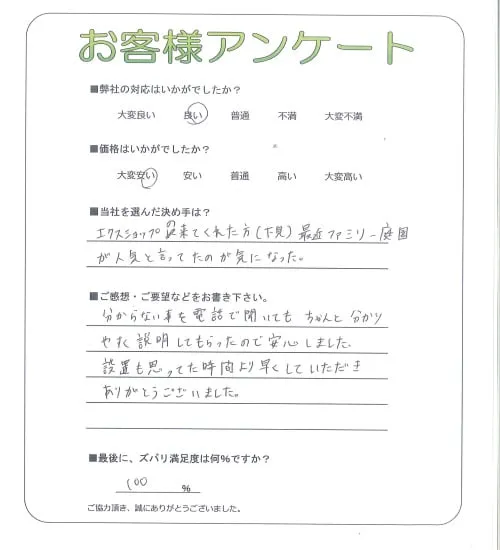 お客様アンケート
■弊社の対応はいかがでしたか?
大変良い 良い 普通 不満 大変不満
■価格はいかがでしたか?
大変安い 安い 普通 高い 大変高い
■当社を選んだ決め手は?
エクスショップの来てくれた方(下見)最近ファミリー庭園
が人気と言ってたのが気になった。
■ご感想・ご要望などをお書き下さい。
分からない事を電話で聞いても ちゃんと分かり
やすく説明してもらったので安心しました。
設置も思ってた時間より早くしていただき
ありがとうございました。
■最後に、ズバリ満足度は何%ですか?
100 %
ご協力頂き、誠にありがとうございました。